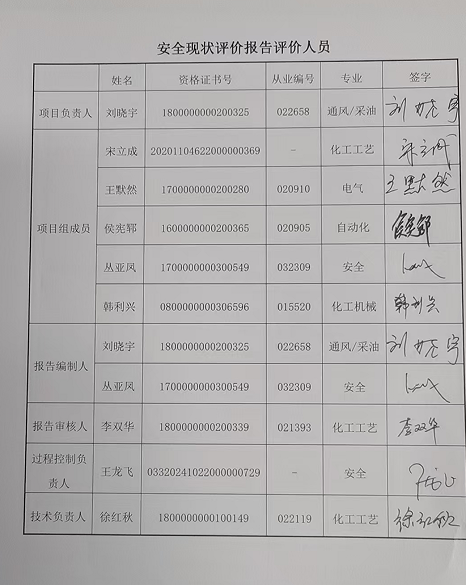 安全现状评价报告评价人员
姓名 资格证书号 从业编号 专业 签字
项目负责人 刘晓宇 1800000000200325 022658 通风/采油 刘晓宇
项目组成员 宋立成 20201104622000000369 - 化工工艺 宋立成
王默然 1700000000200280 020910 电气 王默然
侯宪郓 1600000000200365 020905 自动化
丛亚凤 1700000000300549 032309 安全
韩利兴 0800000000306596 015520 化工机械 韩利兴
报告编制人 刘晓宇 1800000000200325 022658 通风/采油 刘晓宇
丛亚凤 1700000000300549 032309 安全
报告审核人 李双华 1800000000200339 021393 化工工艺 李双华
过程控制负
责人 王龙飞 03320241022000000729 - 安全
技术负责人 徐红秋 1800000000100149 022119 化工工艺 徐红秋